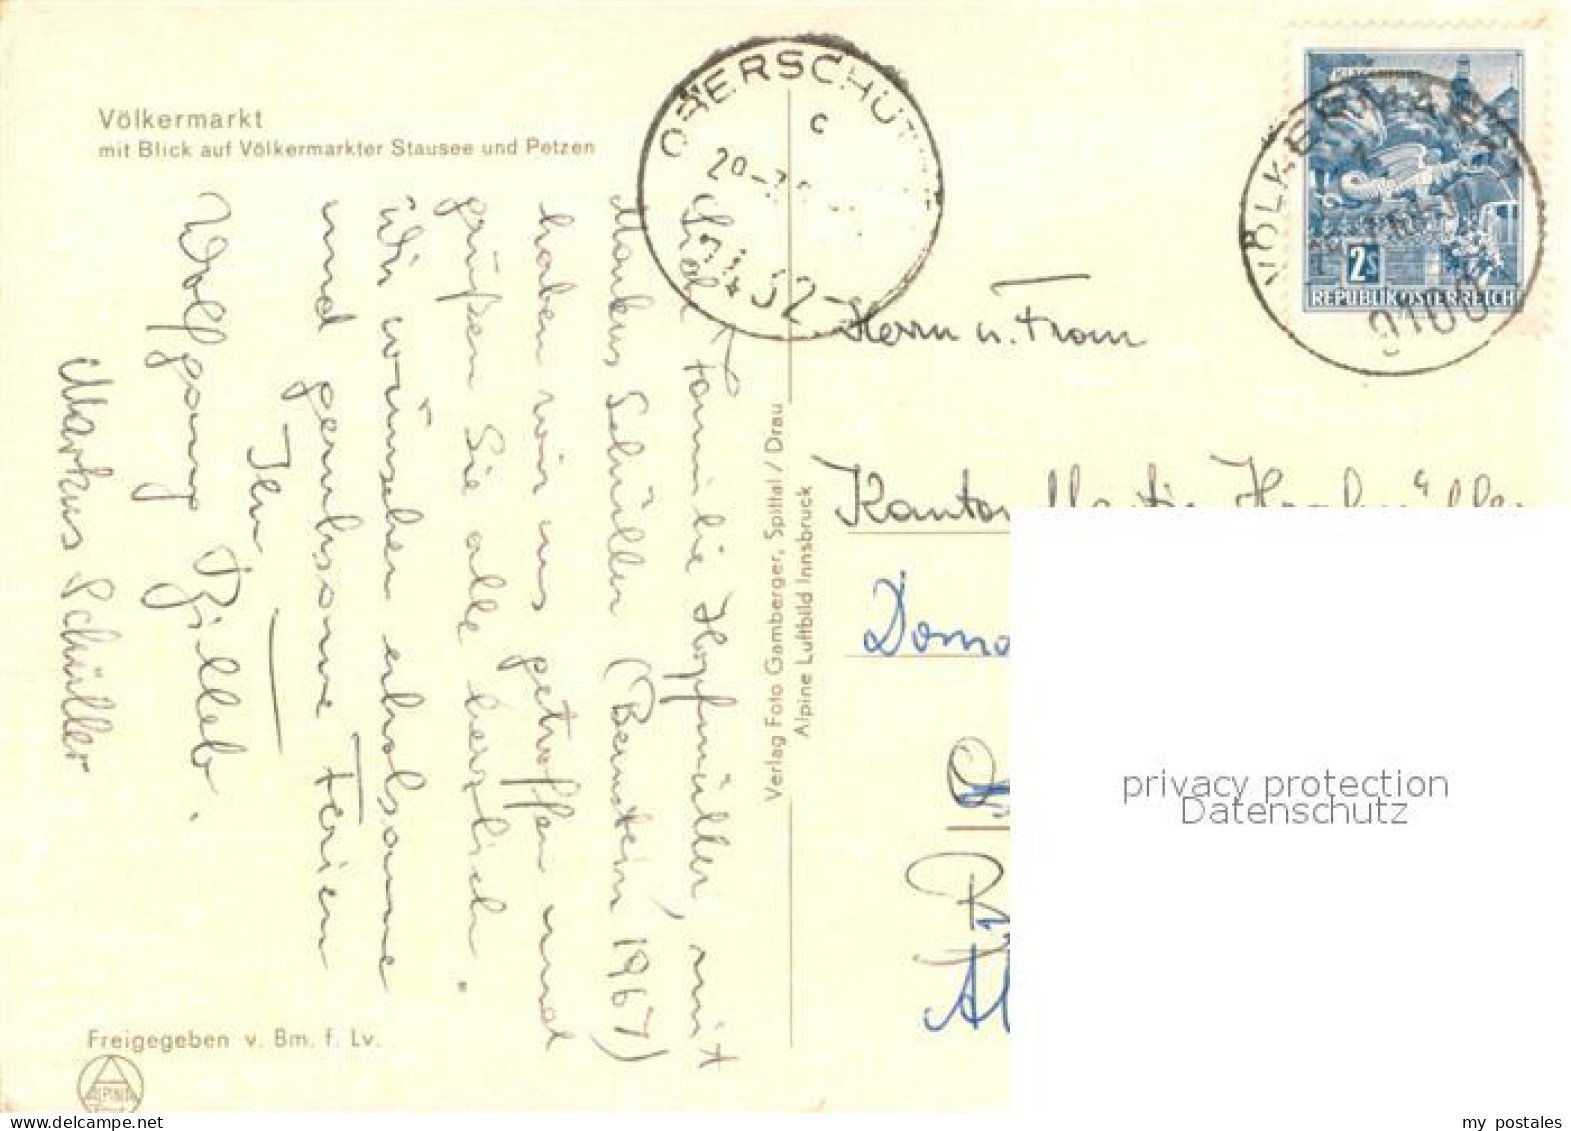 Völkermarkt
mit Blick auf Völkermarkter Stausee und Petzen
OBERSCHÜT
c
7452
VÖLKERMARKT
9100
2s
REPUBLIK ÖSTERREICH
Familie Hopfmüller, mit
Markus Schüller (Bernstein 1967)
haben wir uns getroffen und
grüßen Sie alle herzlich.
Wir wünschen erholsame
und geruhsame Ferien
Ihr
Wolfgang
Markus Schüller
Verlag Foto Gamberger, Spittal / Drau
Alpine Luftbild Innsbruck
Herrn u. Frau
Kantor
Freigegeben v. Bm. f. Lv.
ALPINE
privacy protection
Datenschutz
my postales